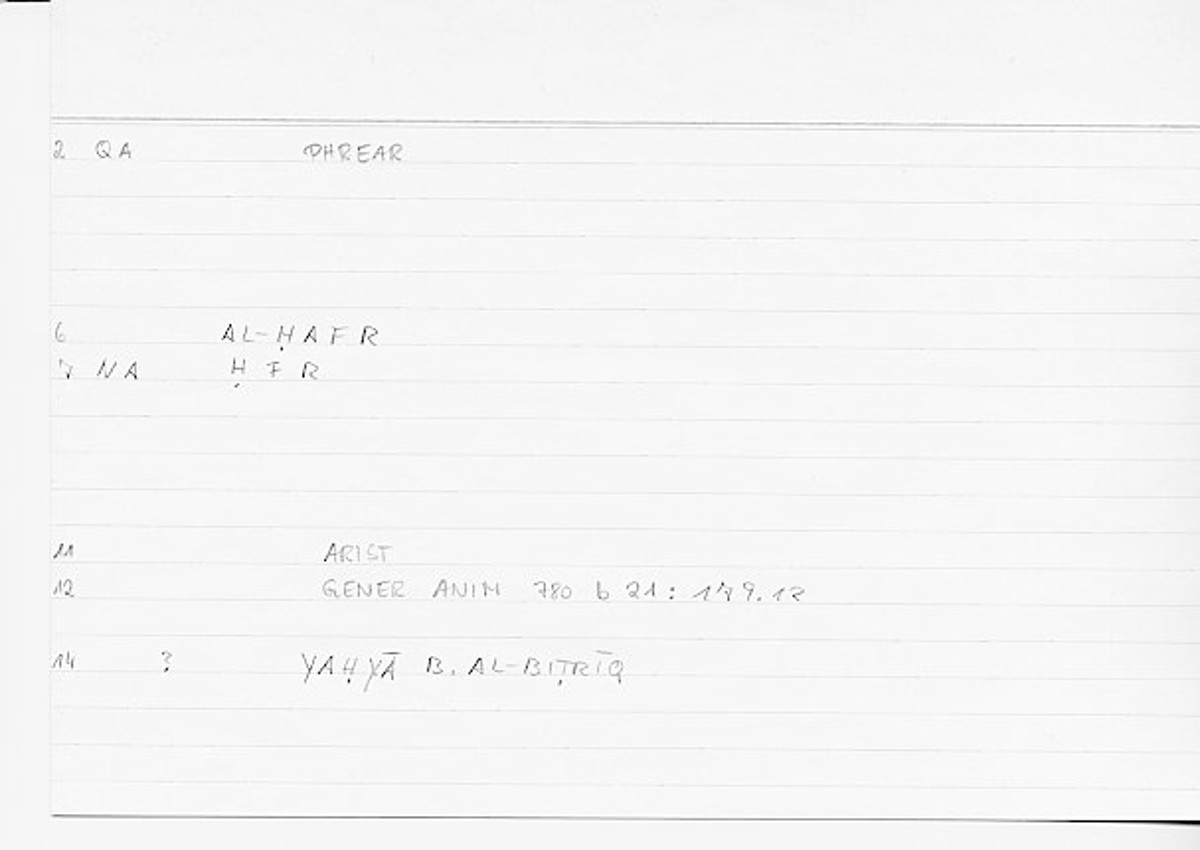 2 QA PHREAR
6 AL-ḤAFR
7 NA ḤFR
11 ARIST
12 GENER ANIM 780 b 21: 179.12
14 ? YAḤYĀ B. AL-BIṬRĪQ